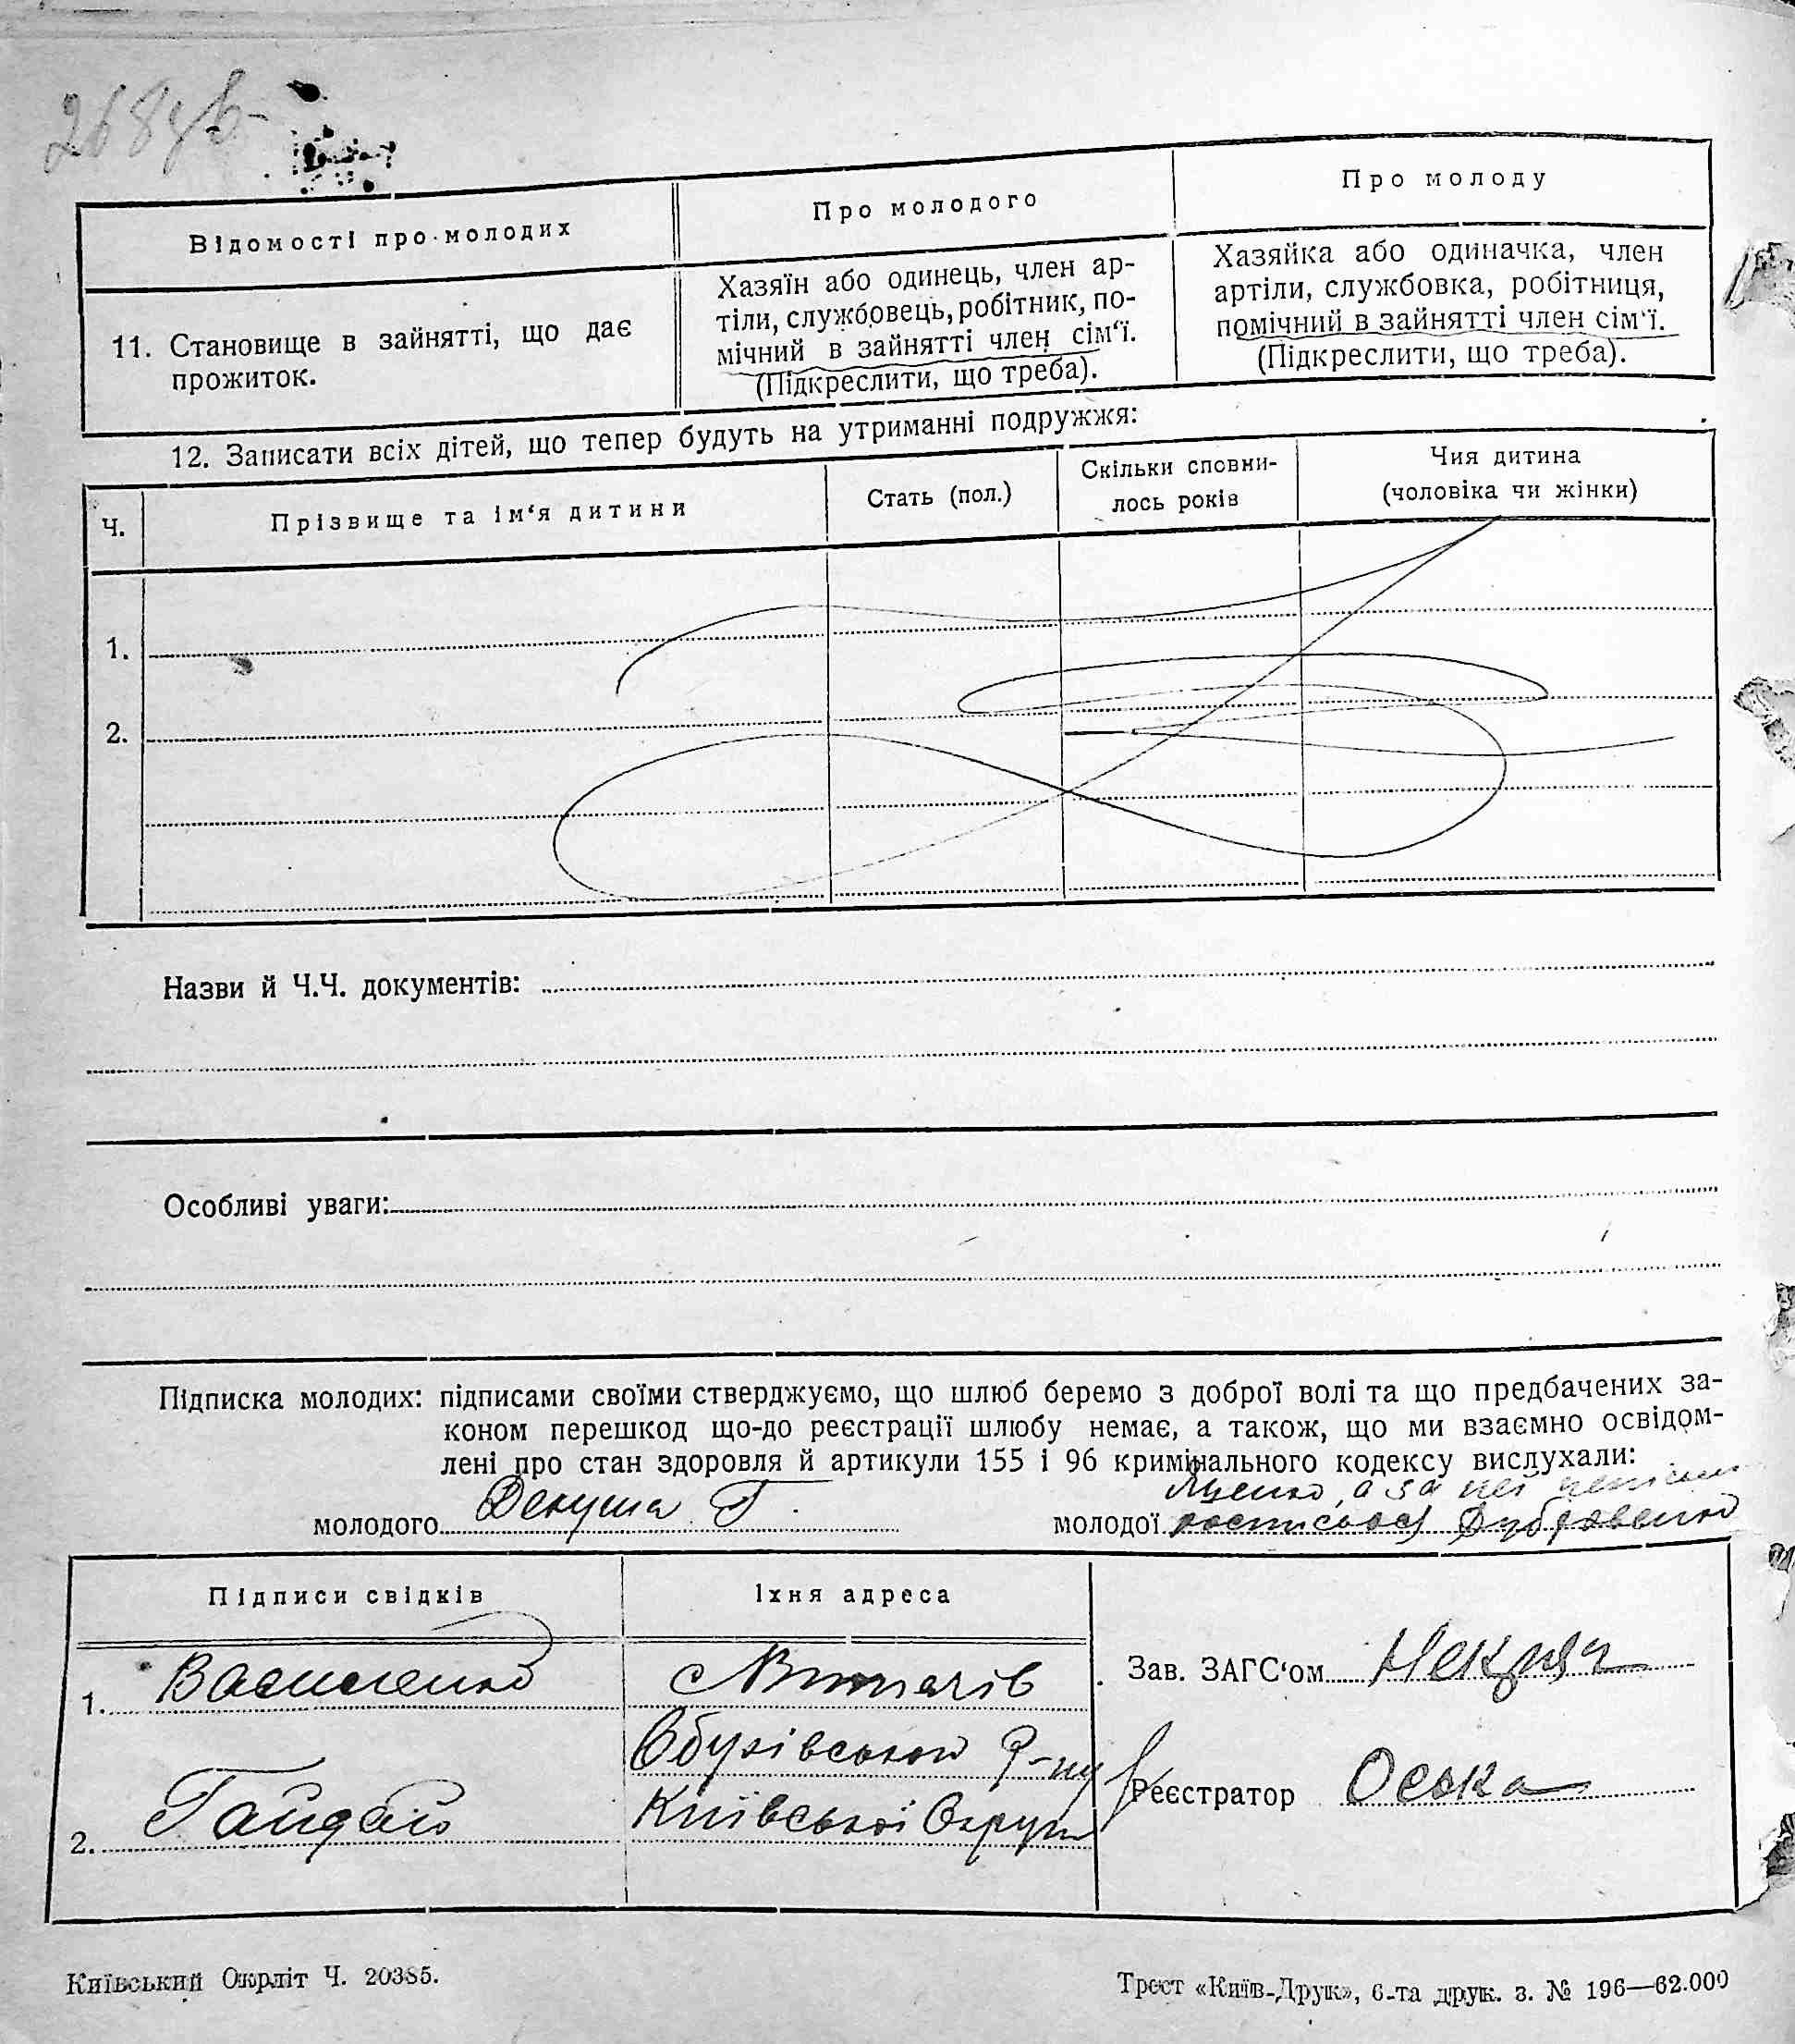 268
Відомості про молодих
Про молодого
Про молоду
11. Становище в зайнятті, що дає
прожиток.
Хазяїн або одинець, член ар-
тіли, службовець, робітник, по-
мічний в зайнятті член сім‘ї.
(Підкреслити, що треба).
Хазяйка або одиначка, член
артіли, службовка, робітниця,
помічний в зайнятті член сім‘ї.
(Підкреслити, що треба).
12. Записати всіх дітей, що тепер будуть на утриманні подружжя:
Ч.
Прізвище та ім‘я дитини
Стать (пол.)
Скільки сповни-
лось років
Чия дитина
(чоловіка чи жінки)
1.
2.
Назви й Ч.Ч. документів:
Особливі уваги:
Підписка молодих: підписами своїми стверджуємо, що шлюб беремо з доброї волі та що предбачених за-
коном перешкод що-до реєстрації шлюбу немає, а також, що ми взаємно освідом-
лені про стан здоровля й артикули 155 і 96 кримінального кодексу вислухали:
молодого Декуша Г.
а за неї
молодої росписався Дубравенко
Підписи свідків
Їхня адреса
1. Василенко
с Витачів
Обухівського Р-ну
2. Гайдай
Київської Округи
Зав. ЗАГС‘ом
Реєстратор Оська
Київський Окрліт Ч. 20385.
Трест «Київ-Друк», 6-та друк. з. № 196—62.000